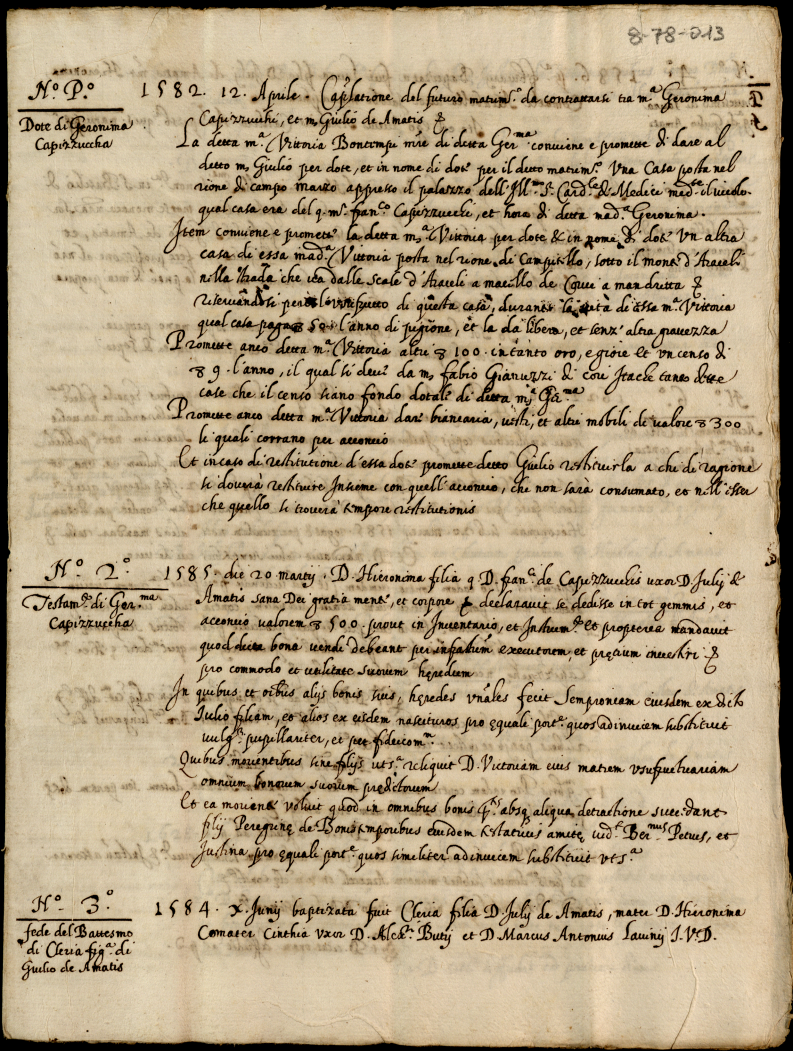 8-78-013
Nº. Pº.
Dote di Geronima
Capizzuccha
1582. 12. Aprile. Capitulatione del futuro matrim.º da contrattarsi tra m.ª Geronima
Capizzucchi, et m. Giulio de Amatis &
La detta m.ª Vittoria Bontempi m̃re di detta Ger.ma conviene e promette di dare al
detto m. Giulio per dote, et in nome di dote per il detto matrim.º Una Casa posta nel
rione di campo marzo appresso il palazzo dell'Ill.mo S. Card.le de Medici med.te il vicolo.
qual casa era del q. m. fran.co Capizzucchi, et hora di detta mad.ª Geronima.
Item conviene e promette la detta m.ª Vittoria per dote & in nome di dote Un altra
casa di essa mad.ª Vittoria posta nel rione di Campitello, sotto il monte d'Araceli
nella strada che va dalle scale d'Araceli a macello de Corvi a man dritta &
reservandosi però l'usufrutto di questa casa, durante la vita di essa m.ª Vittoria
qual casa paga ▽ 50 l'anno di pigione, et la dà libera, et senz'altra gravezza
Promette anco detta m.ª Vittoria altri ▽ 100 in tanto oro, e gioie et un censo di
▽ 9. l'anno, il qual si deve da m. fabio Gianuzzi di Cori Itache tanto dette
case che il censo siano fondo dotale di detta m.ª Ger.ma
Promette anco detta m.ª Vittoria dare biancaria, vesti, et altri mobili di valore ▽ 300
li quali corrano per acconcio
Et in caso di restitutione d'essa dote promette detto Giulio restituirla a chi di ragione
si doverà restituire Insieme con quell'acconcio, che non sarà consumato, et nell'esser
che quello si troverà tempore restitutionis
Nº. 2º.
Testam.to di Ger.ma
Capizzuccha
1585. die 20 martij. D. Hieronima filia q. D. fran.ci de Capizzucchis uxor D. Julij de
Amatis sana Dei gratia mente, et corpore & declaravit se dedisse in tot gemmis, et
acconcio valorem ▽ 500. prout in Inventario, et Instrum.to et propterea mandavit
quod dicta bona vendi debeant per infrascriptum executorem, et pretium investiri &
pro commodo et utilitate suorum heredum
In quibus et oĩbus alijs bonis suis, heredes uñales fecit Semproniam eiusdem ex dicto
Iulio filiam, et alios ex eisdem nascituros pro equali port.e quos ad invicem substituit
vulg.r pupillariter, et per fideicom.m
Quibus morientibus sine filijs ut s.ª reliquit D. Victoriam eius matrem usufructuariam
omnium bonorum suorum predictorum
Et ea moriente voluit quod in omnibus bonis p.tis absq. aliqua detractione succedant
filij Peregrine de Bonistemporibus eiusdem testatricis amite vid.t Ber.nus Petrus, et
Justina pro equali port.e quos similiter ad invicem substituit ut s.ª
Nº. 3º.
fede del Battesmo
di Cleria fig.ª di
Giulio de Amatis
1584. X. Junij baptizata fuit Cleria filia D. Julij de Amatis, mater D. Hieronima
Comater Cinthia uxor D. Alex.ri Butij et D. Marcus Antonius Lavinij J.V.D.